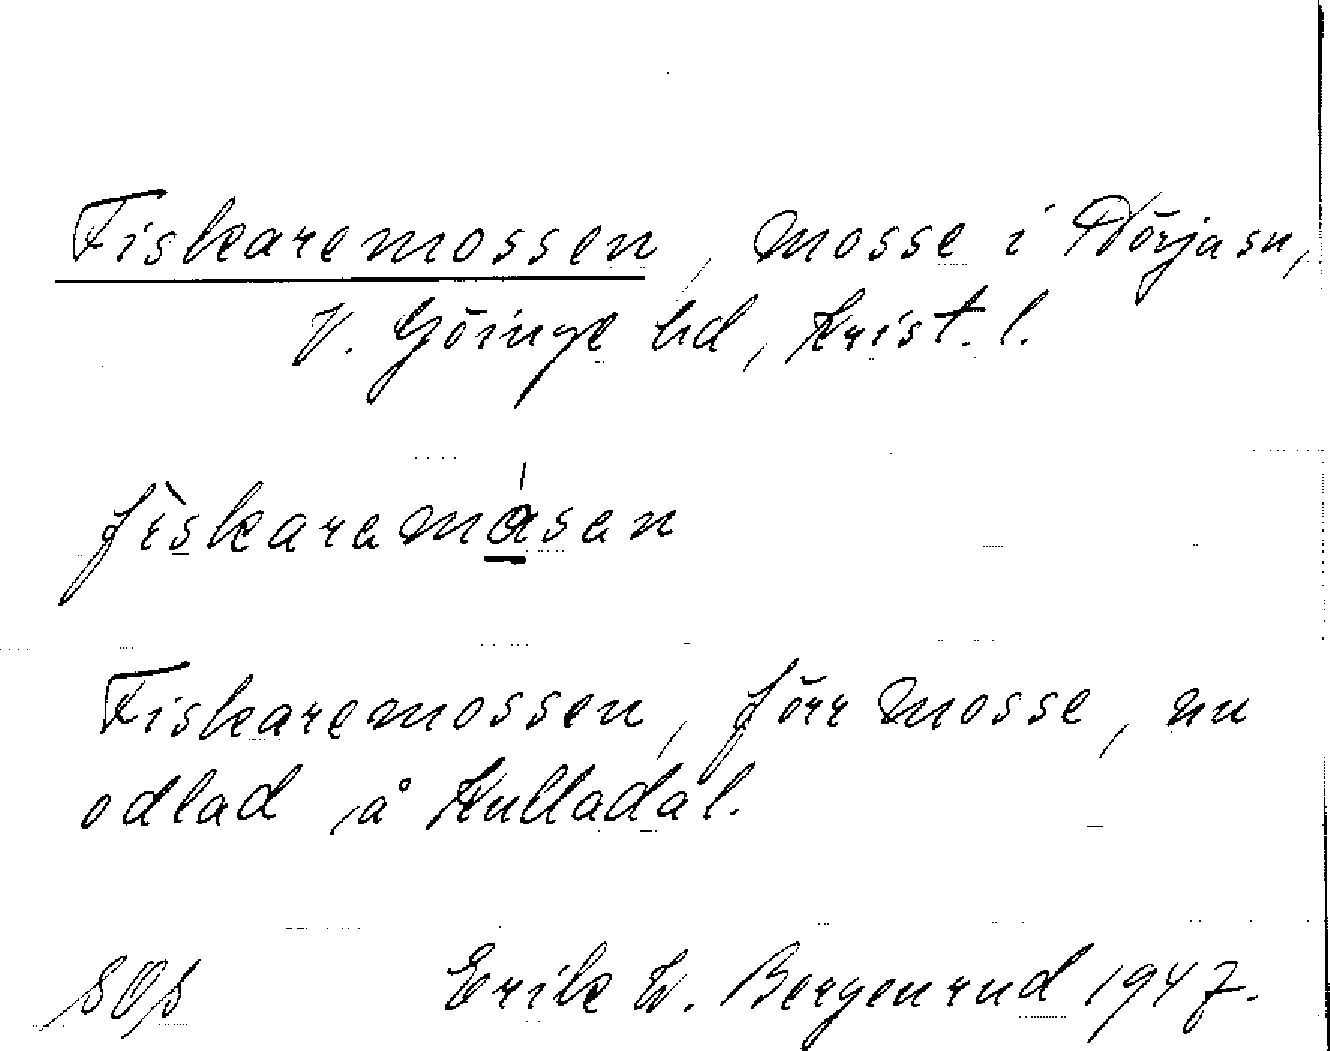 Fiskaremossen, mosse i Nörja sn,
V. Göinge hd, Krist. l.
fìskaramásan
Fiskaremossen, förr mosse, nu
odlad, å Kulladal.
SOp Erik W. Bergenrud 1947.